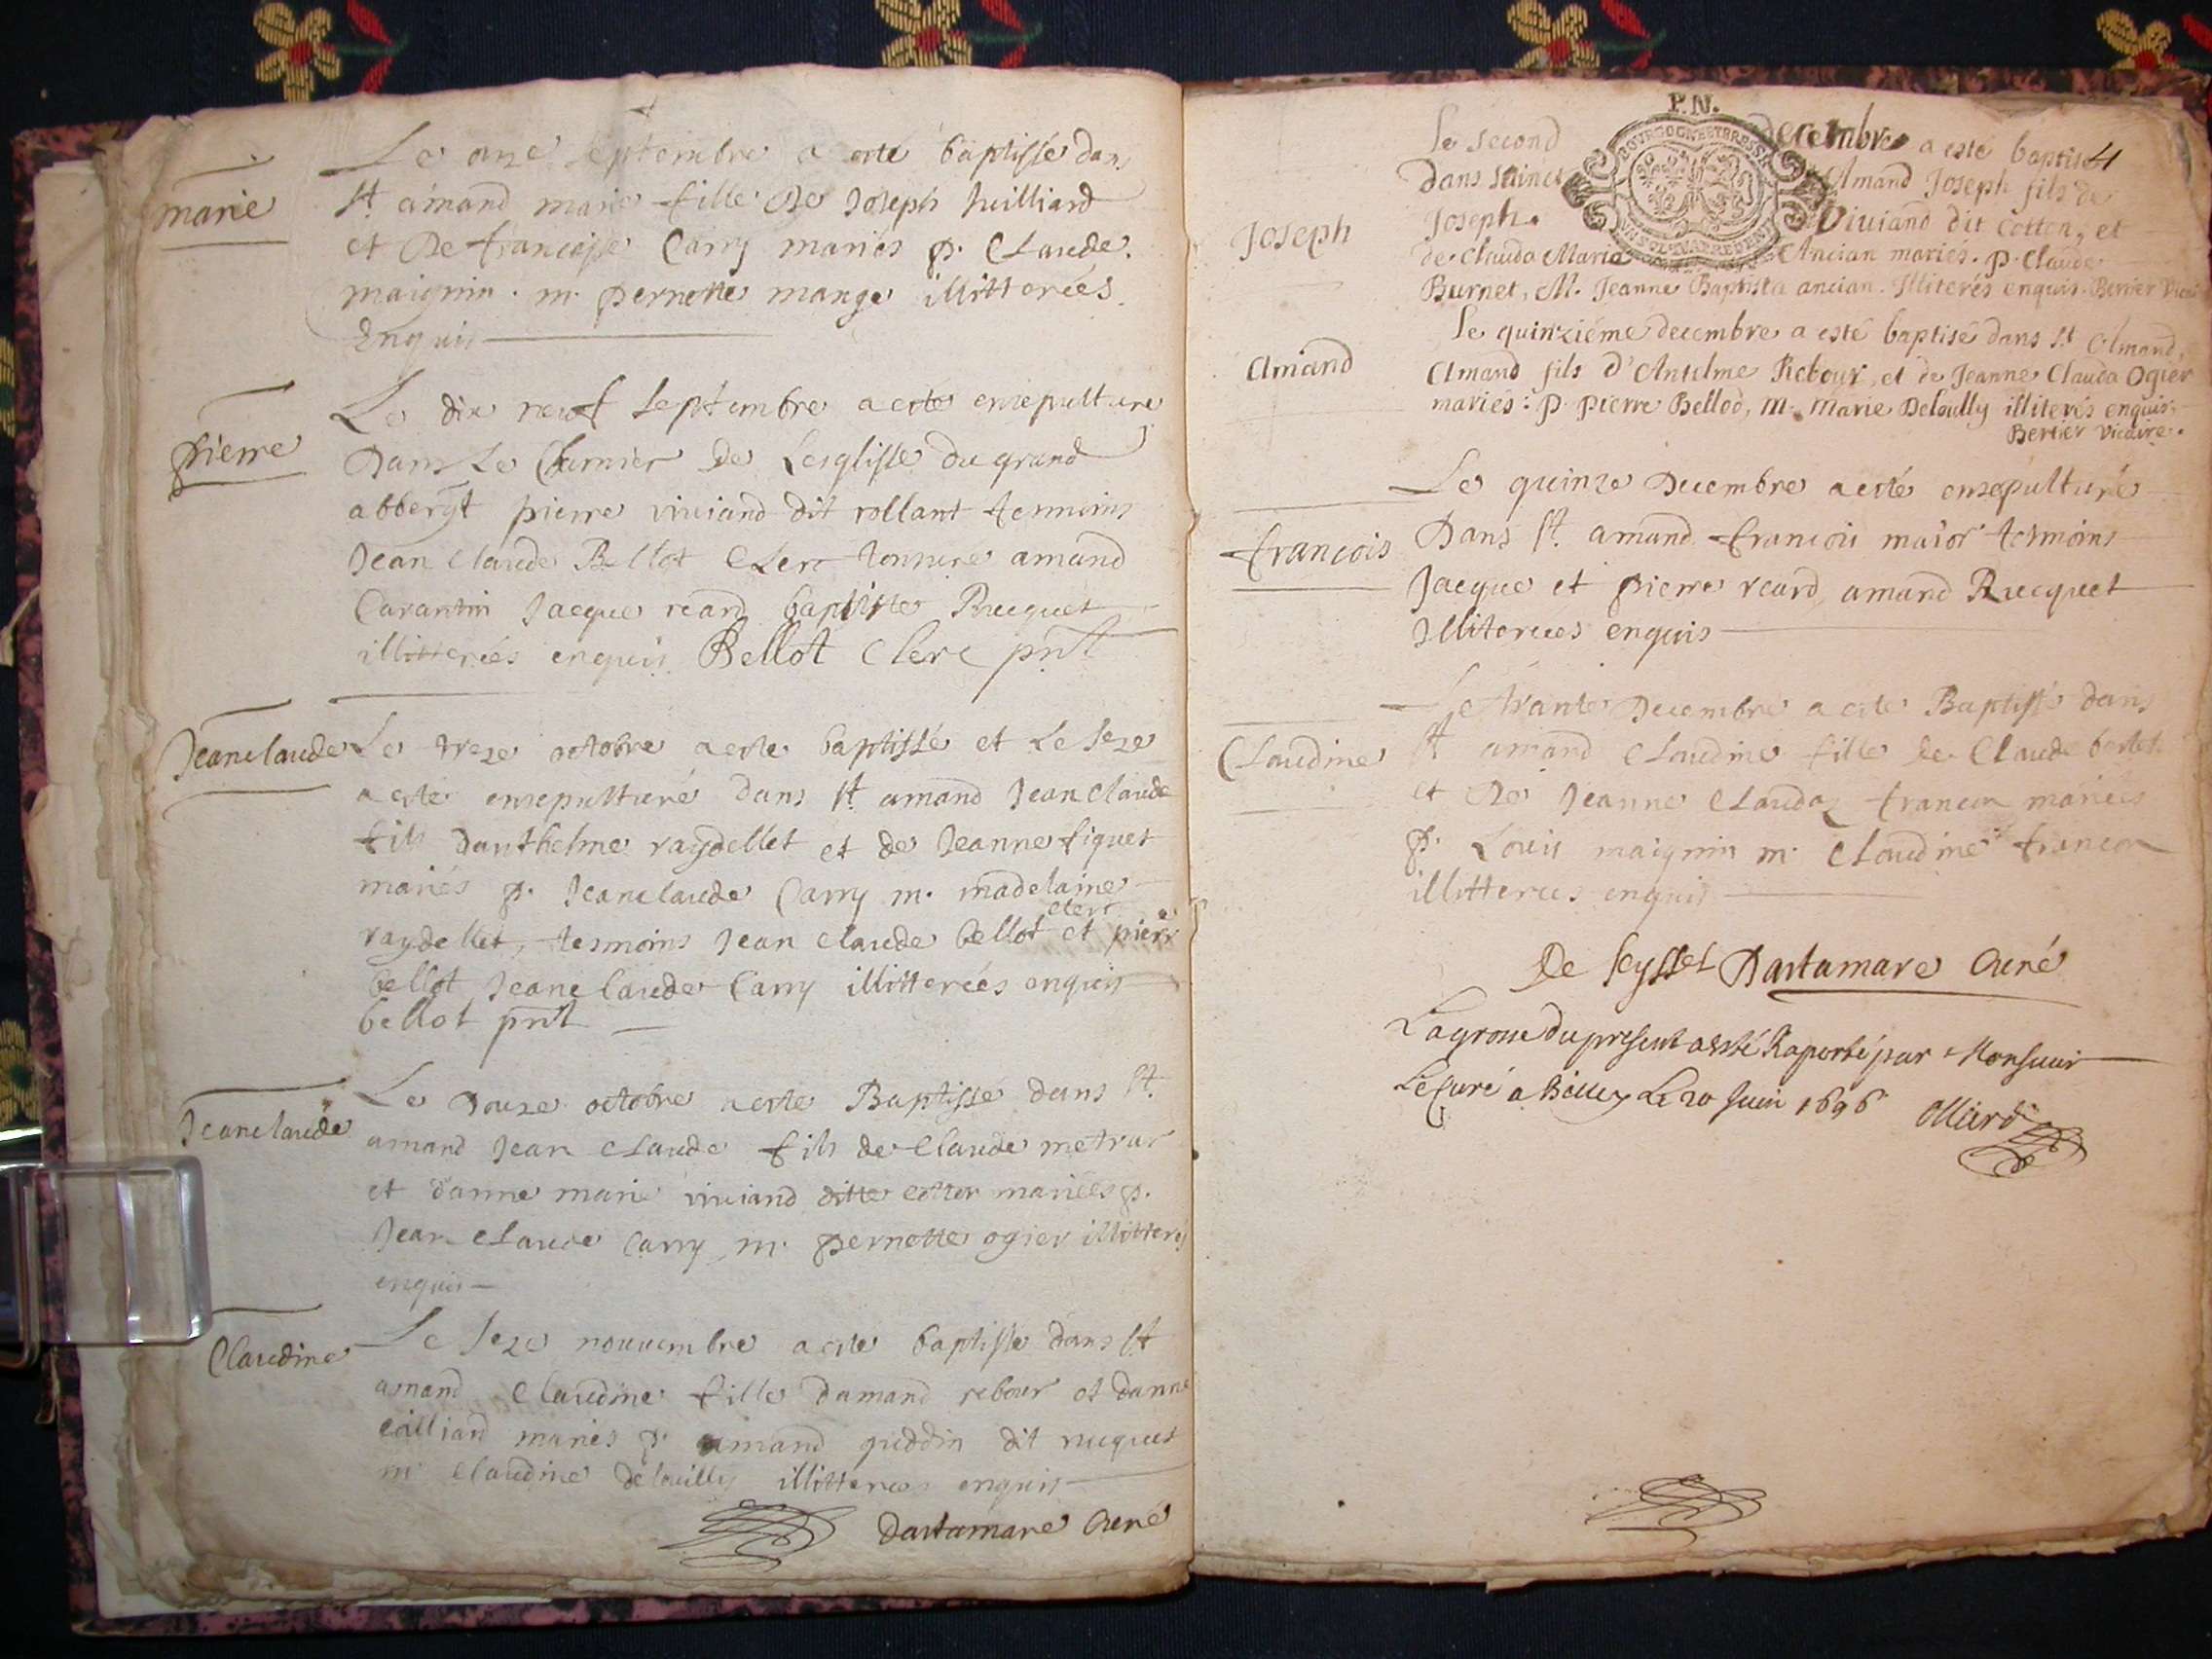 Le onze septembre a esté baptissé dans
marie
st amand marie fille de Joseph Juilliard
et de francoise Carry mariés p. Claude
maignin . m. pernette mange illitterées
Enquis
Le dix neuf septembre a esté ensepulturé
pierre
Dans Le Charnier de Lesglisse du grand
abbergt pierre viuiand dit rollant tesmoins
Jean Claude Bellot Clerc tonsuré amand
Carantin Jacque reard baptiste Rucquet
illitterées enquis Bellot Clerc pnt
Jeanclaude
Le treze octobre a este baptissé et Le seze
a esté ensepulturé dans st amand Jean Claude
fils danthelme raydellet et de Jeanne fiquet
mariés p. Jeanclaude Carry m. madelaine
clerc
raydellet, tesmoins Jean claude bellot et pierre
bellot Jeanclaude Carry illitterées enquis
bellot pnt
Le douze octobre a este Baptissé dans st
Jeanclaude
amand Jean Claude fils de Claude metrar
et danne marie viuiand ditte cotton mariées p.
Jean Claude Carry m. pernette ogier illitterés
enquis
Le seze nouuembre a este baptisse dans st
Claudine
amand Claudine fille damand rebour et danne
cailliard mariés p. amand guddin dit rucquet
m. Claudine delouilly illitterées enquis
Dartamare Curé
P. N.
4
Le second decembre a esté baptisé
Dans sainct Amand Joseph fils de
Joseph
Joseph Viuiand dit Cotton, et
de Clauda Maria Ancian mariés. p. Claude
Burnet, M. Jeanne Baptista ancian. Illiterés enquis. Bertier Vicaire
Le quinziéme decembre a esté baptisé dans st Amand,
Amand
Amand fils d'Antelme Rebour, et de Jeanne Clauda Ogier
mariés: p. pierre Bellod, m. marie Delouilly illiterés enquis.
Bertier vicaire.
Le quinze Decembre a esté ensepulturé
francois
Dans st. amand francois maior tesmoins
Jacque et pierre reard, amand Rucquet
Illiterées enquis
Le trante Decembre a este Baptissé dans
Claudine
st amand Claudine fille de Claude bertet
et de Jeanne Claudaz francon mariées
p. Louis maignin m. Claudine francon
illitterees enquis
De Seyssel Dartamare Curé
La grosse du present a esté Raporté par Monsieur
Le Curé a Belley Le 20 Juin 1696